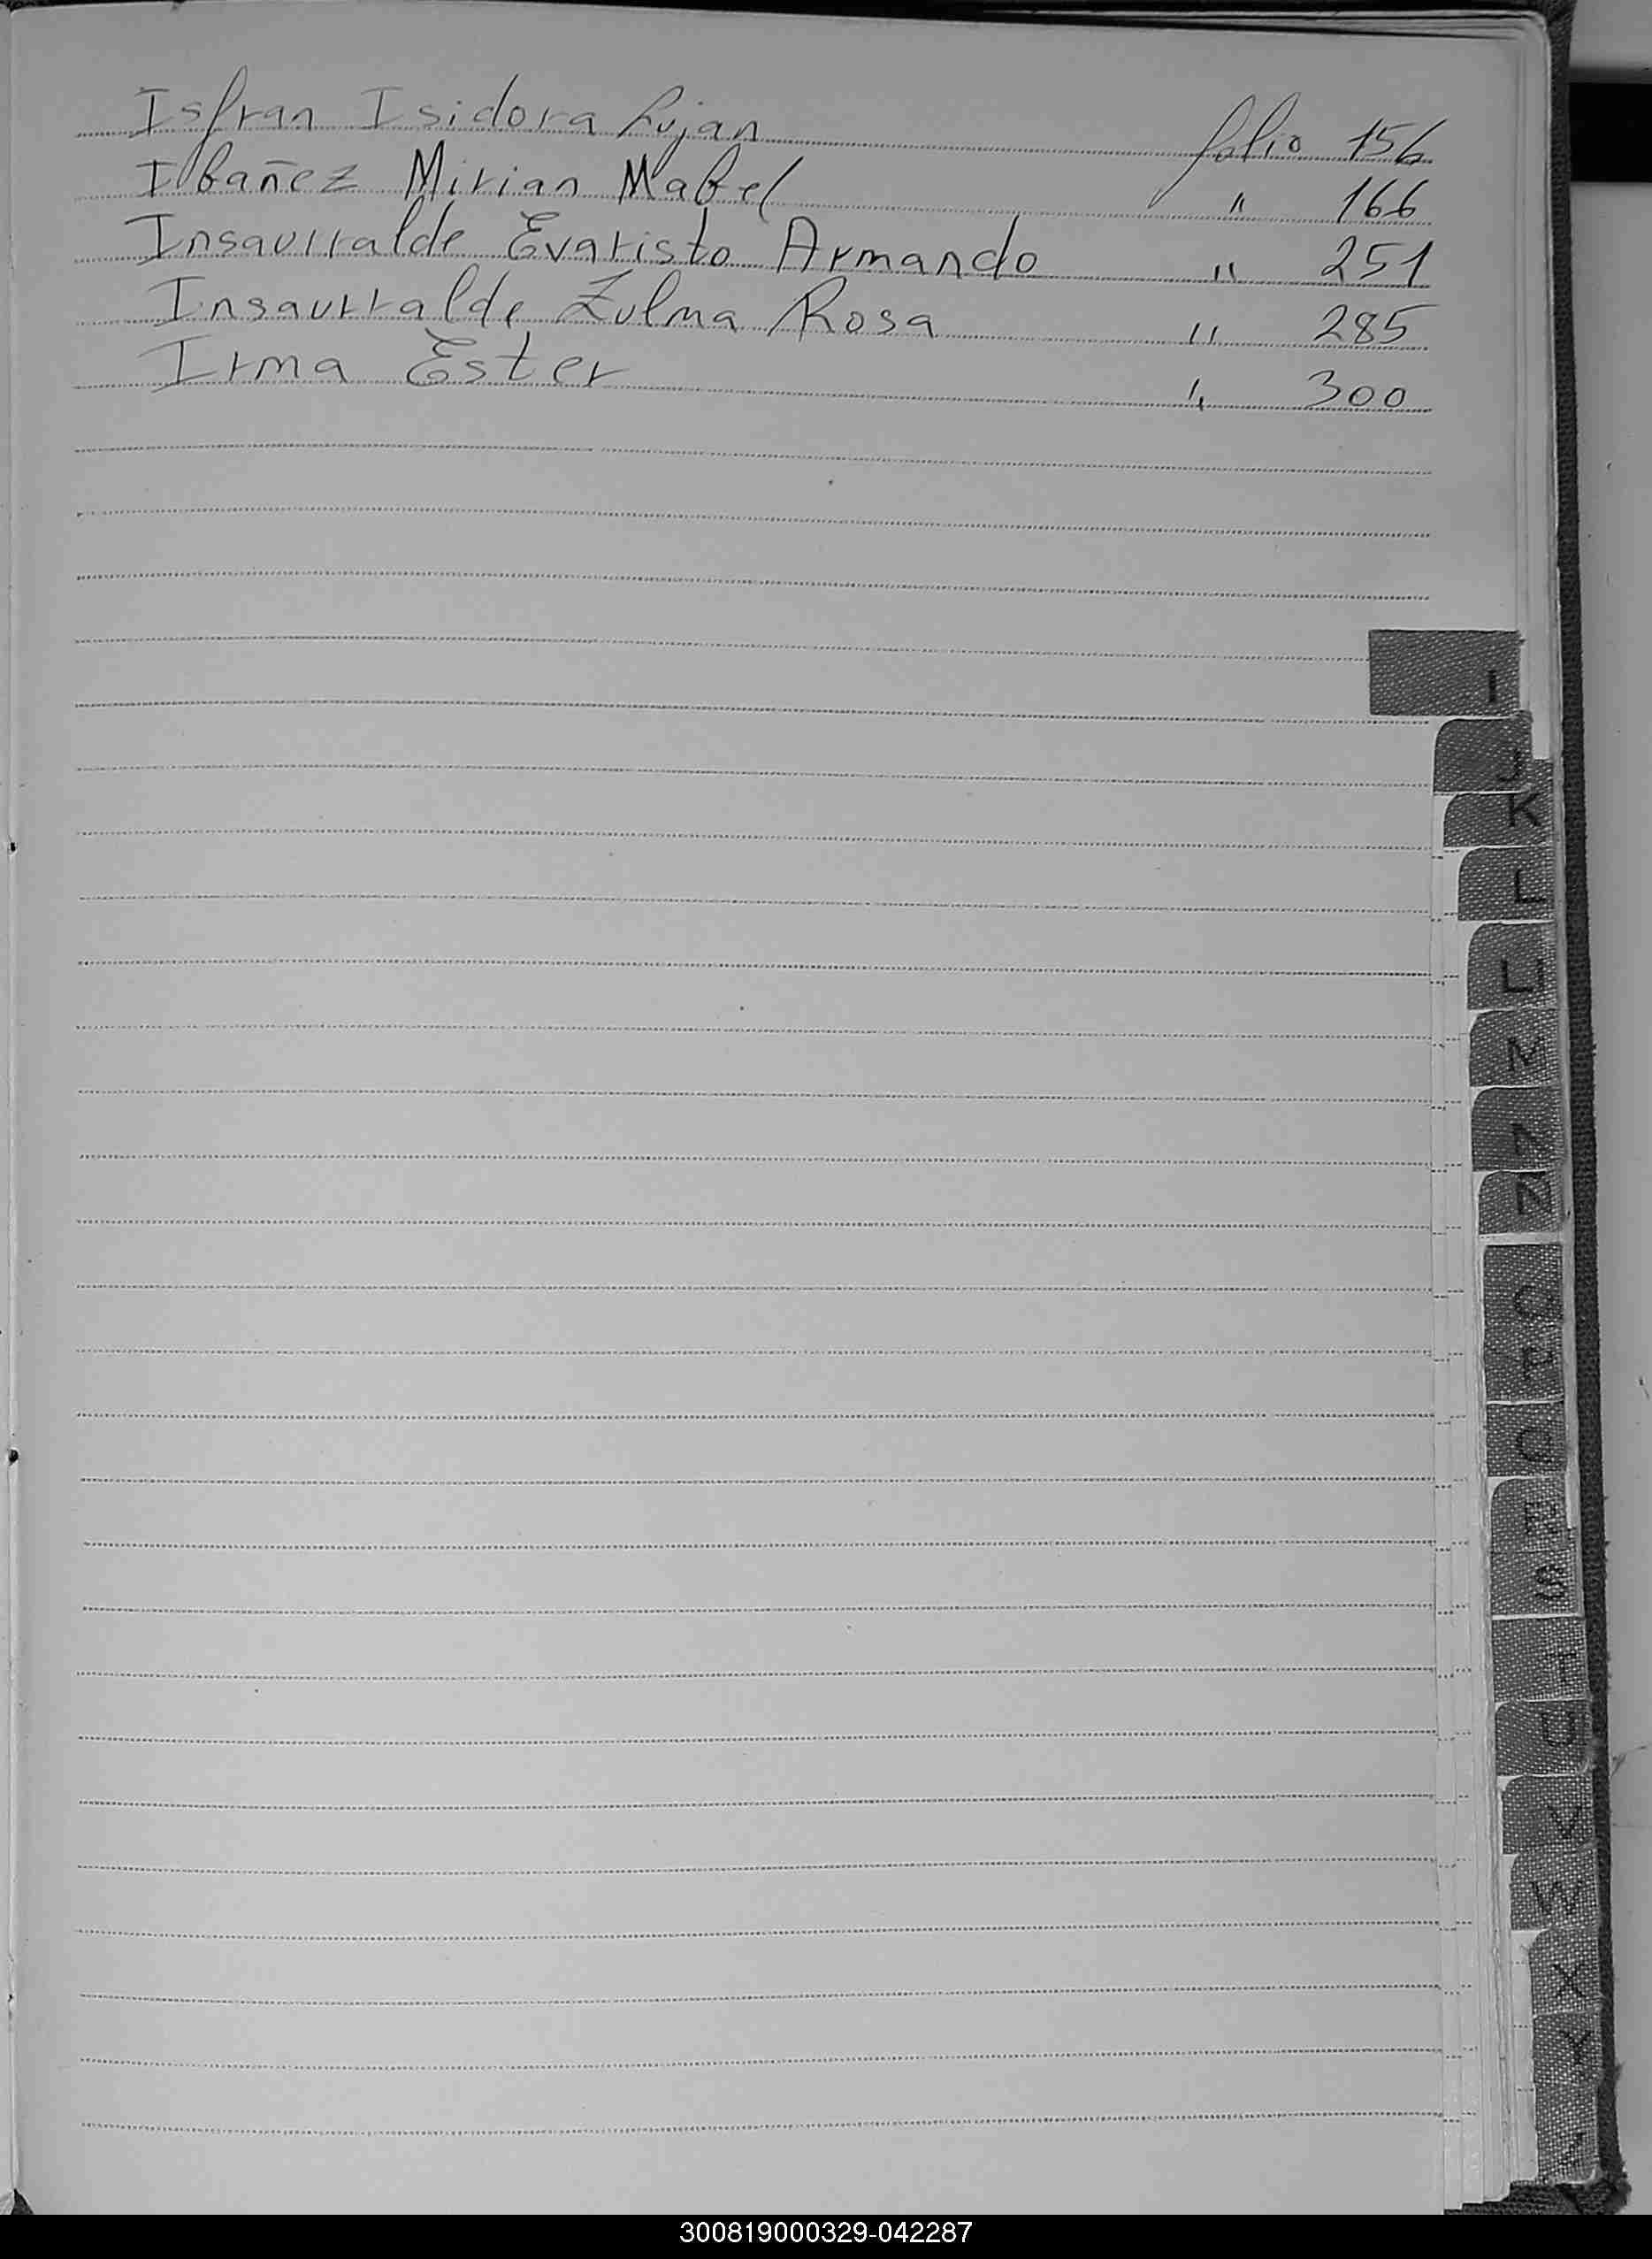 Isfran Isidora Lujan folio 156
Ibañez Mirian Mabel " 166
Insaurralde Evaristo Armando " 251
Insaurralde Zulma Rosa " 285
Irma Ester " 300
I
J
K
L
LL
M
N
Ñ
O
P
Q
R
S
T
U
V
W
X
Y
Z
300819000329-042287